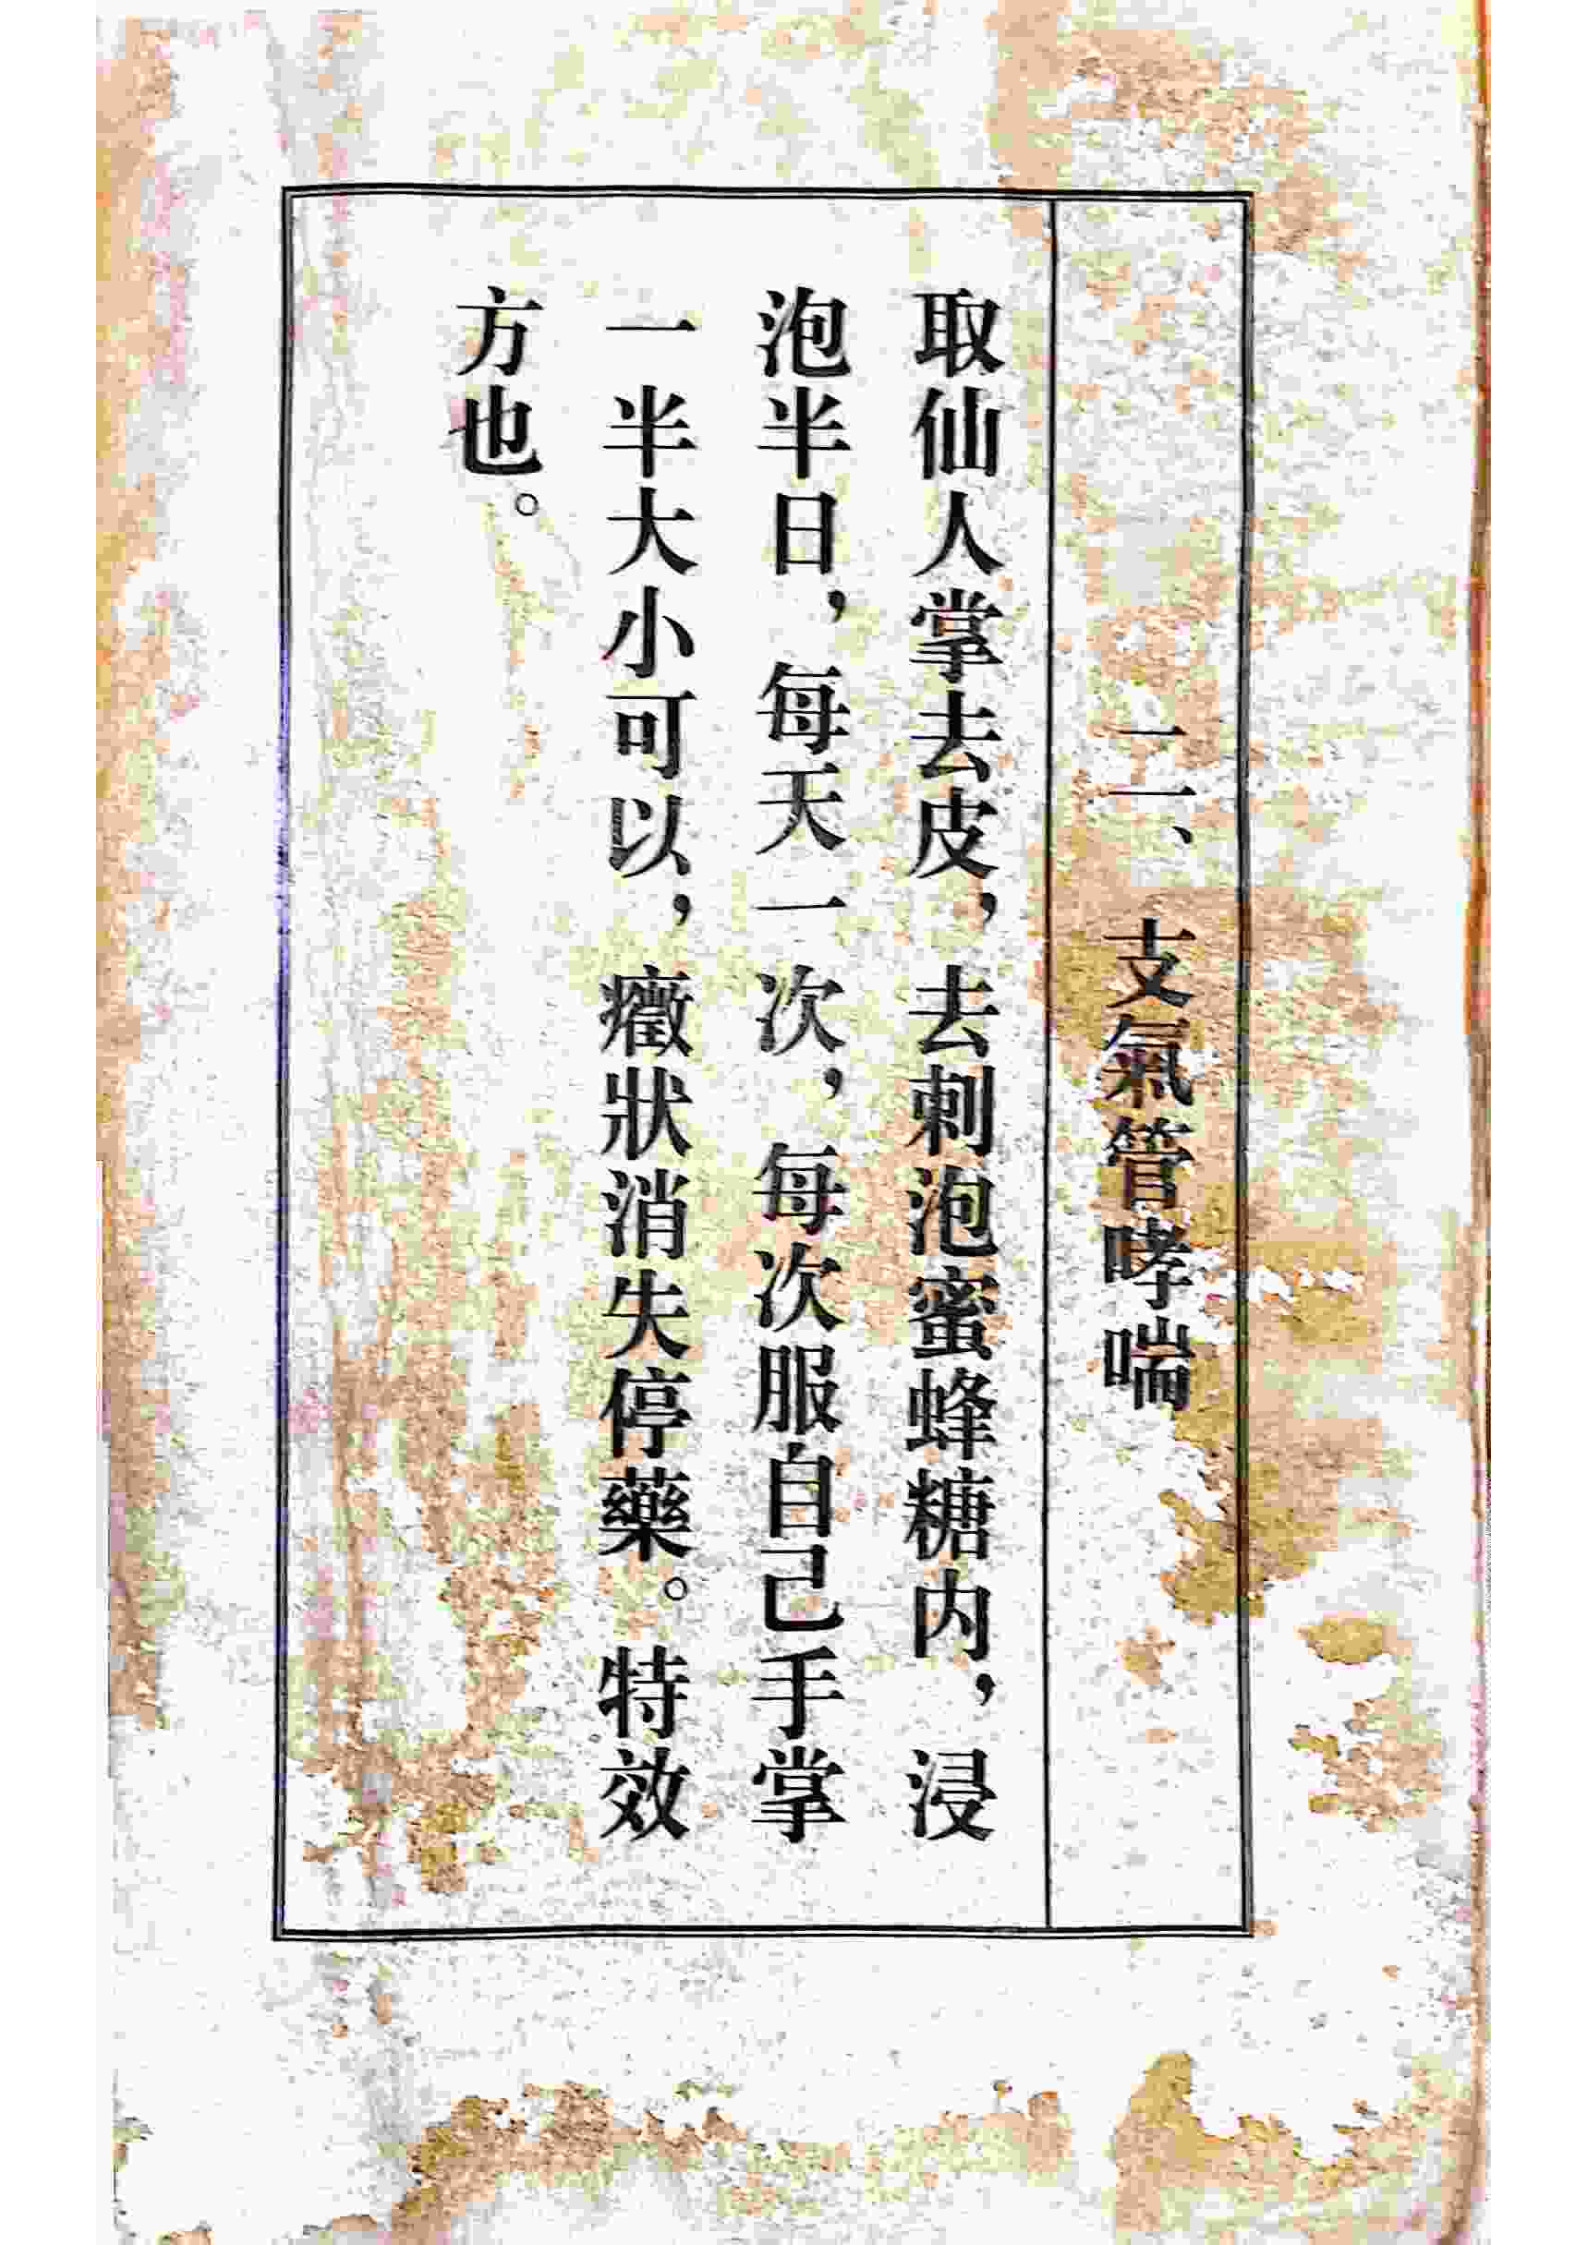 二、支氣管哮喘
取仙人掌去皮，去刺泡蜜蜂糖内，浸
泡半日，每天一次，每次服自己手掌
一半大小可以，癥狀消失停藥。特效
方也。